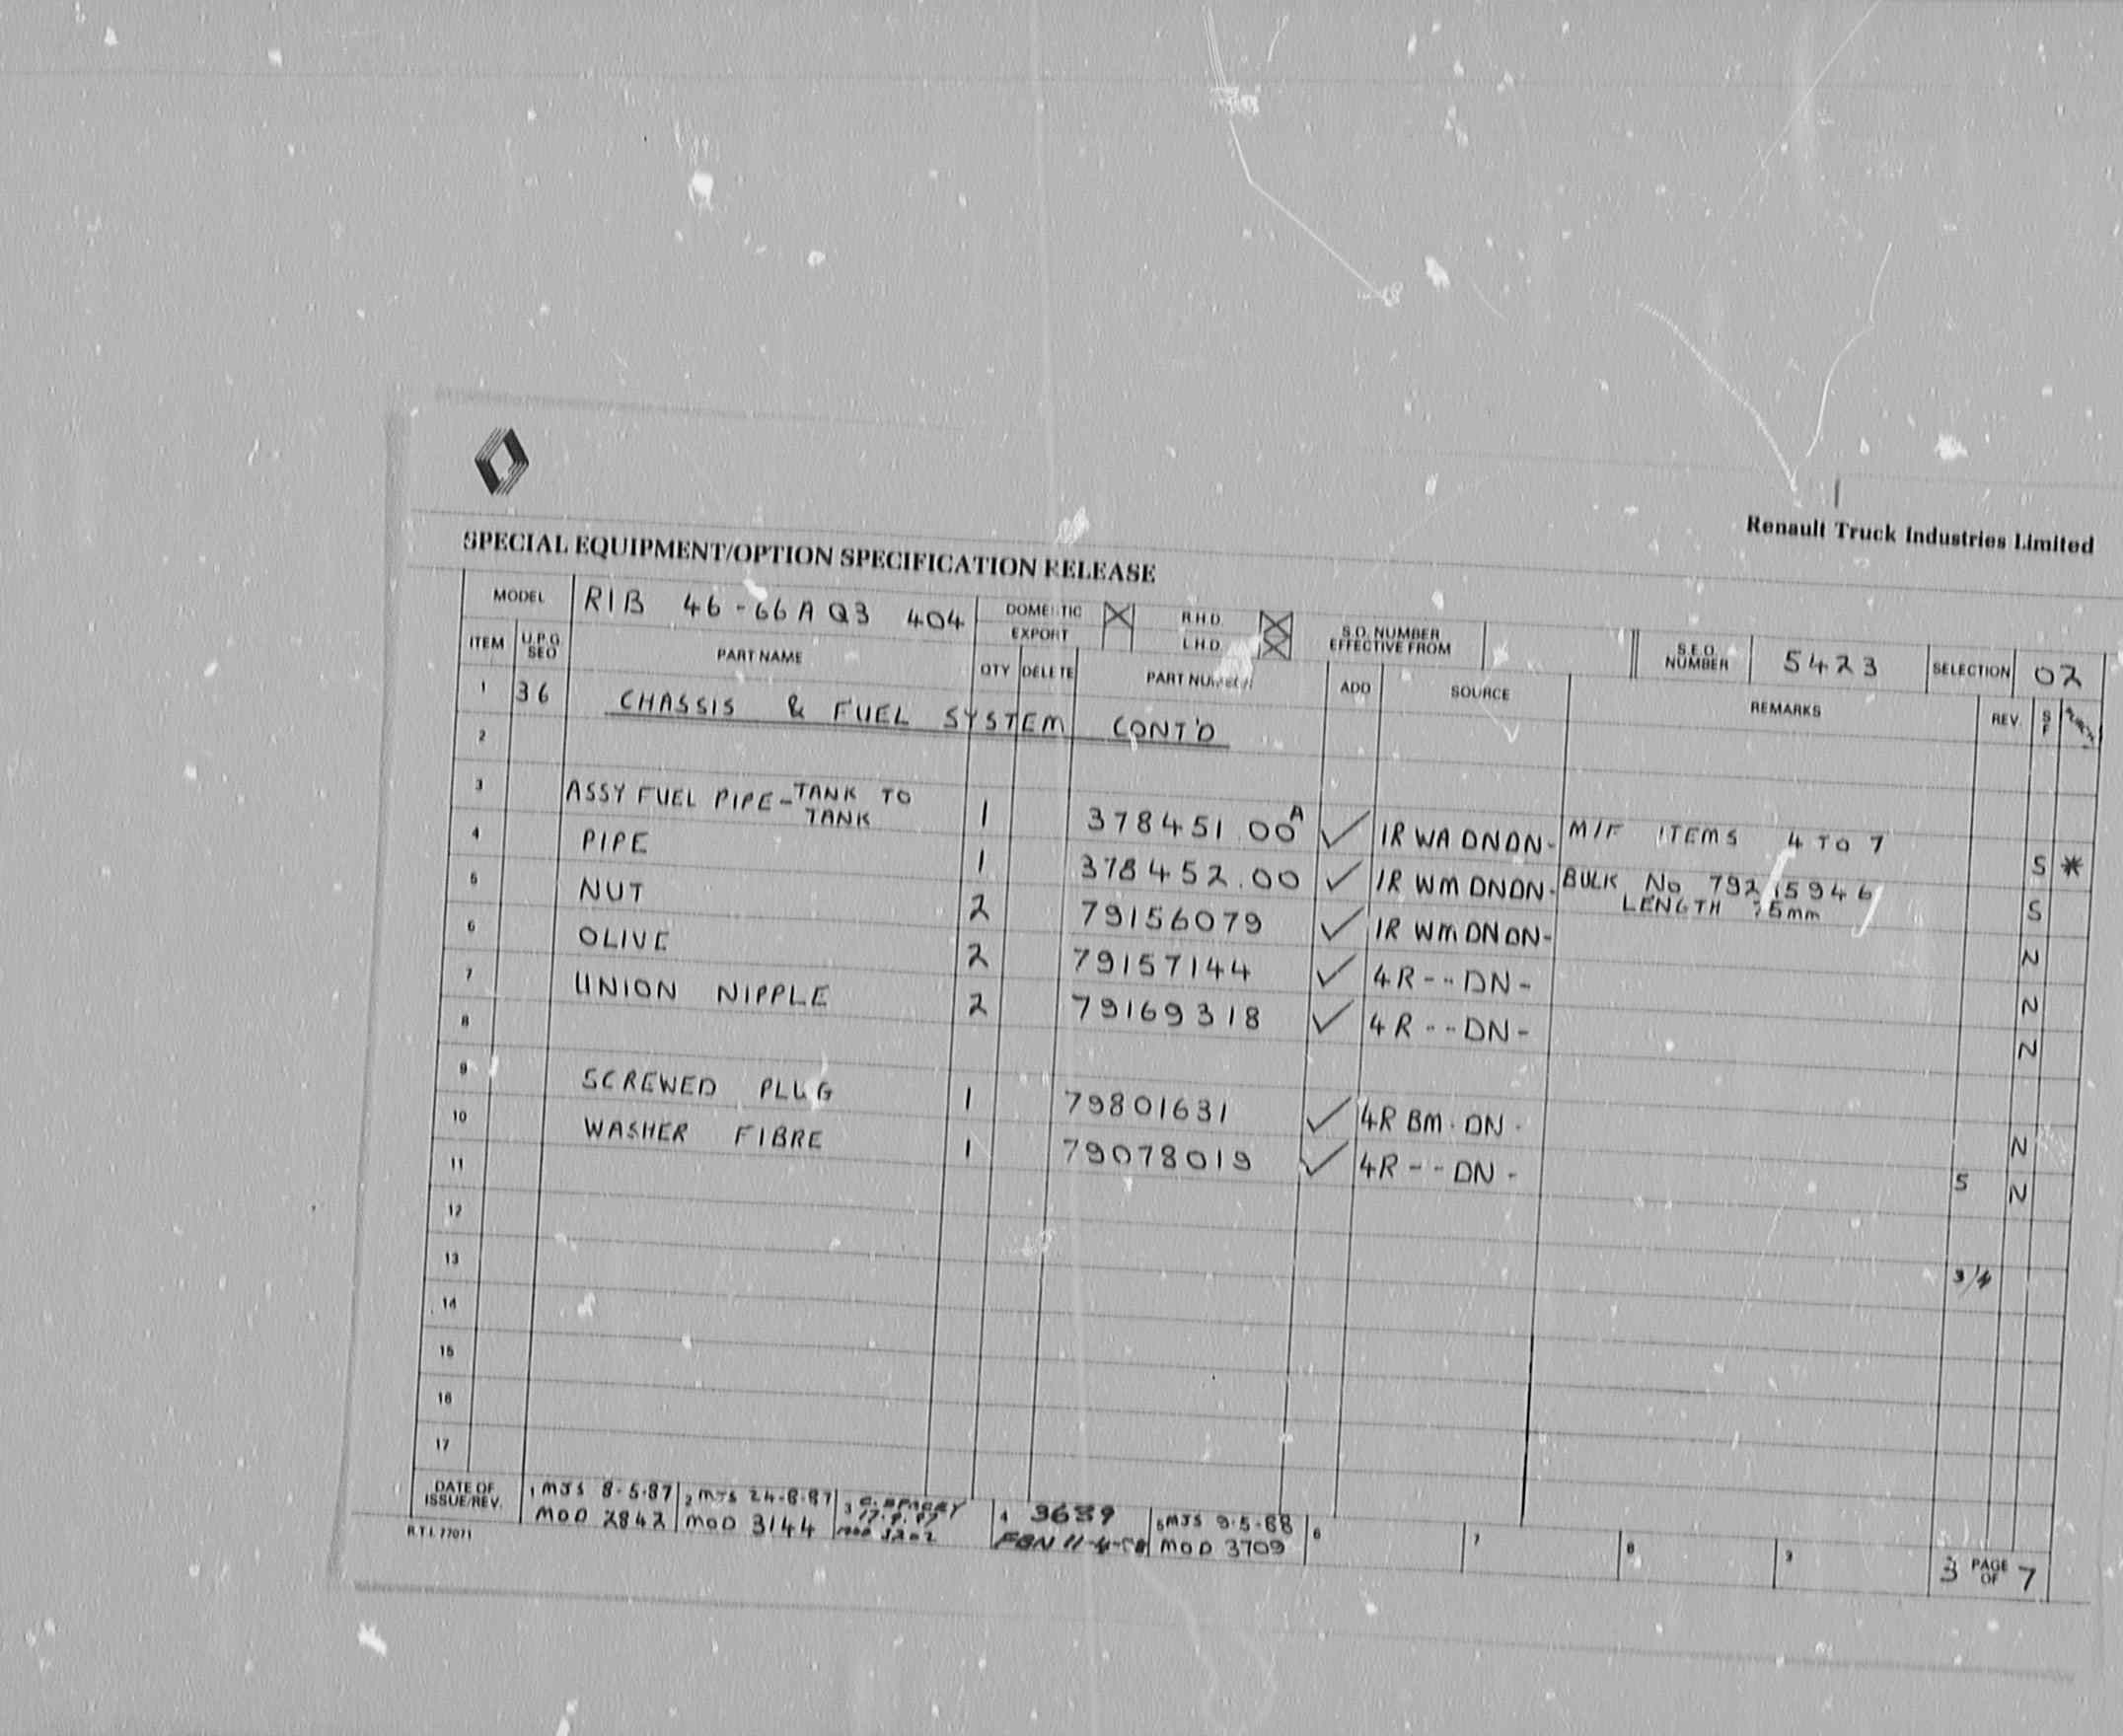 Renault Truck Industries Limited
SPECIAL EQUIPMENT/OPTION SPECIFICATION RELEASE
MODEL RIB 46-66A Q3 404 DOMESTIC R.H.D. S.O. NUMBER EFFECTIVE FROM S.E.O. NUMBER 5423 SELECTION 02
EXPORT L.H.D.
ITEM U.P.G SEO PART NAME QTY DELETE PART NUMBER ADD SOURCE REMARKS REV. S F
1 36 CHASSIS & FUEL SYSTEM CONT'D
2
3 ASSY FUEL PIPE-TANK TO TANK 1 378451.00A ✓ 1R WA DNDN- M/F ITEMS 4 TO 7 S *
4 PIPE 1 378452.00 ✓ 1R WM DNDN- BULK No 79215946 S
LENGTH mm
5 NUT 2 79156079 ✓ 1R WM DNDN- N
6 OLIVE 2 79157144 ✓ 4R--DN- N
7 UNION NIPPLE 2 79169318 ✓ 4R--DN- N
8
9 SCREWED PLUG 1 79801631 ✓ 4R BM-DN- N
10 WASHER FIBRE 1 79078019 ✓ 4R--DN- 5 N
11
12 3/4
13
14
15
16
17
DATE OF ISSUE/REV. 1 MJS 8-5-87 2 MJS 24-8-87 3 4 3689 5 MJS 9-5-88 6 7 8 9 3 PAGE OF 7
MOD 2842 MOD 3144 MOD 3202 MOD 3709
R.T.I. 77071